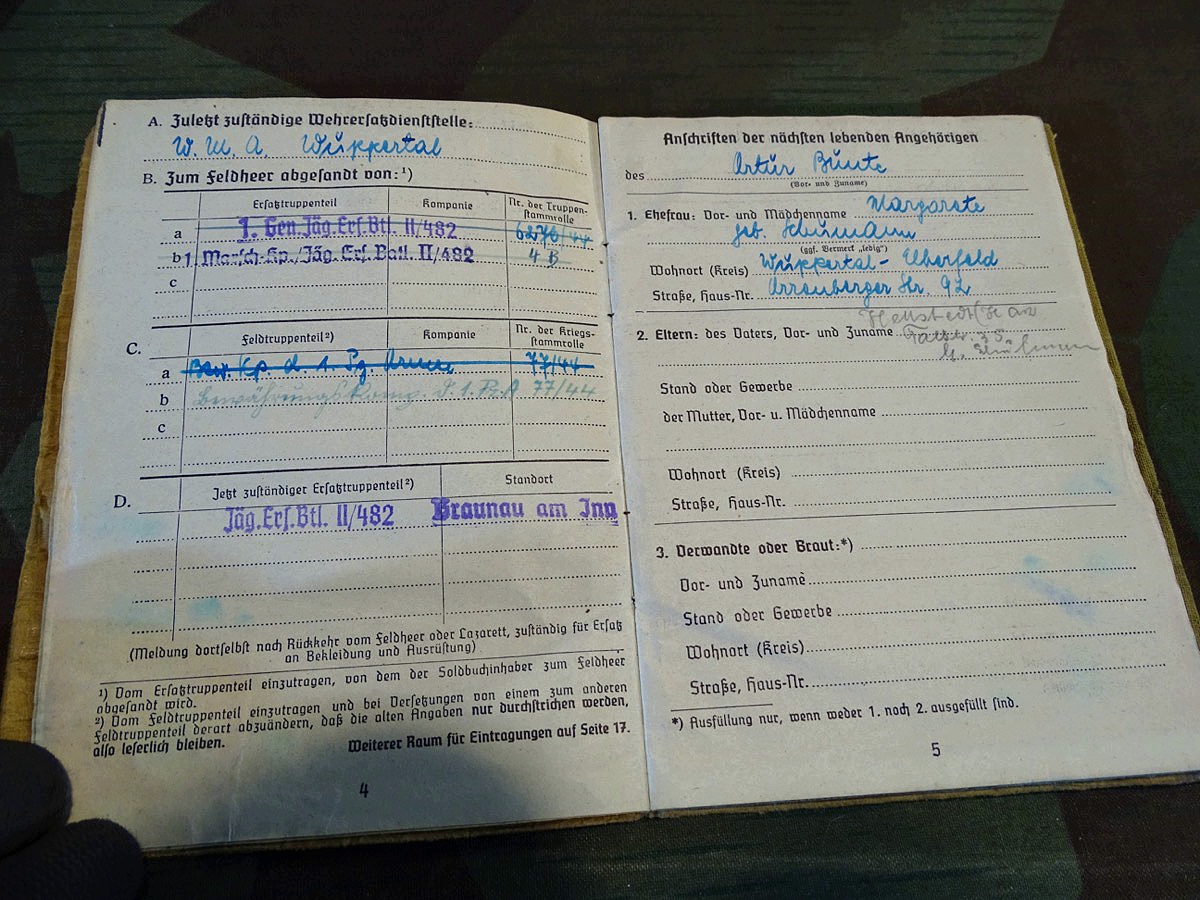 A. Zuletzt zuständige Wehrersatzdienststelle:
W. M. A. Wuppertal
B. Zum Feldheer abgesandt von:¹)
Ersatztruppenteil Kompanie Nr. der Truppen-
stammrolle
a 1. Gen.Jäg.Ers.Btl. II/482 6276/44
b 1. Marsch-Kp./Jäg.Ers.Batl. II/482 4 B
c
C.
Feldtruppenteil²) Kompanie Nr. der Kriegs-
stammrolle
a Bew. Kp. d. 1. Pz. Armee 77/44
b Bewährungskomp. d. 1. Pz. A 77/44
c
D.
Jetzt zuständiger Ersatztruppenteil²) Standort
Jäg.Ers.Btl. II/482 Braunau am Inn
(Meldung dortselbst nach Rückkehr vom Feldheer oder Lazarett, zuständig für Ersatz
an Bekleidung und Ausrüstung)
¹) Vom Ersatztruppenteil einzutragen, von dem der Soldbuchinhaber zum Feldheer
abgesandt wird.
²) Vom Feldtruppenteil einzutragen und bei Versetzungen von einem zum anderen
Feldtruppenteil derart abzuändern, daß die alten Angaben nur durchstrichen werden,
also leserlich bleiben.
Weiterer Raum für Eintragungen auf Seite 17.
4
Anschriften der nächsten lebenden Angehörigen
des Artur Bunte
(Vor- und Zuname)
1. Ehefrau: Vor- und Mädchenname Margarete
geb. Schumann
(ggf. Vermerk „ledig“)
Wohnort (Kreis) Wuppertal-Elberfeld
Straße, Haus-Nr. Arrenberger Str. 92
2. Eltern: des Vaters, Vor- und Zuname
Stand oder Gewerbe
der Mutter, Vor- u. Mädchenname
Wohnort (Kreis)
Straße, Haus-Nr.
3. Verwandte oder Braut:*)
Vor- und Zuname
Stand oder Gewerbe
Wohnort (Kreis)
Straße, Haus-Nr.
*) Ausfüllung nur, wenn weder 1. noch 2. ausgefüllt sind.
5